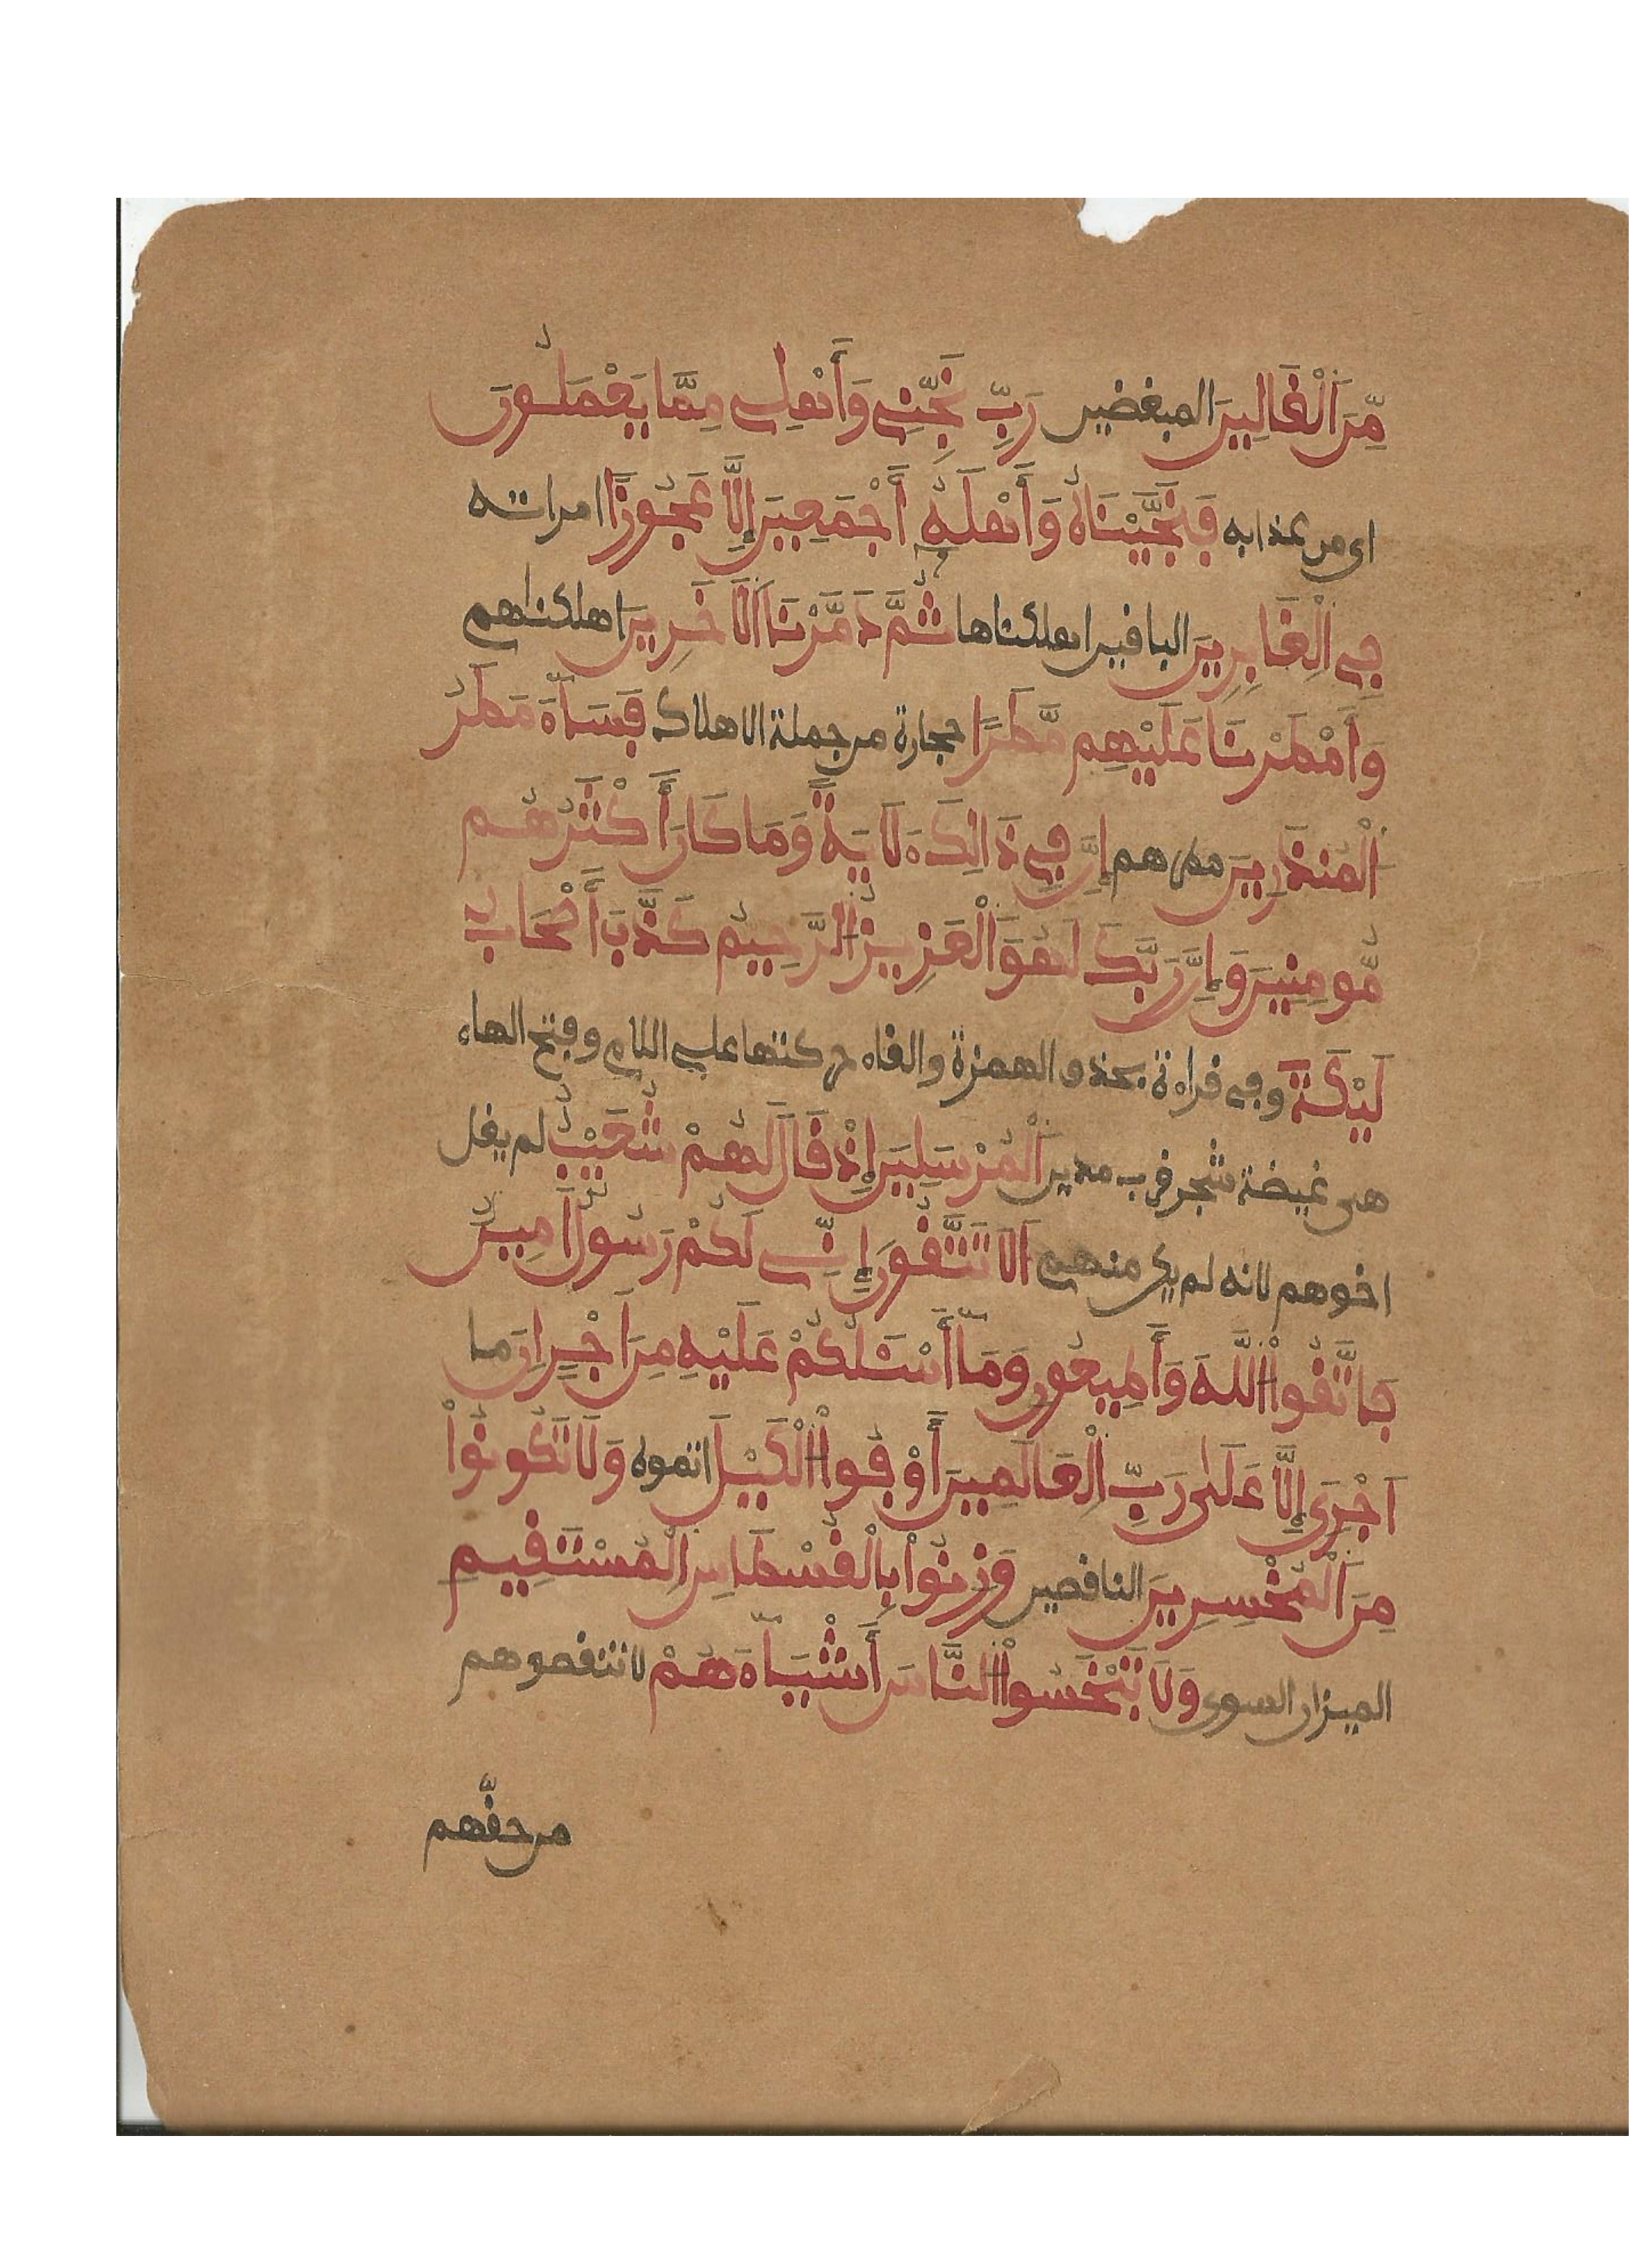 مِّنَ ٱلْقَالِينَ المبغضين رَبِّ نَجِّنِے وَأَهْلِے مِمَّا يَعْمَلُونَ
اى من عذابه فَنَجَّيْنَاهُ وَأَهْلَهُۥ أَجْمَعِينَ إِلَّا عَجُوزًا امراته
فِے ٱلْغَابِرِينَ الباقين اهلكناها ثُمَّ دَمَّرْنَا ٱلَاخَرِينَ اهلكناهم
وَأَمْطَرْنَا عَلَيْهِم مَّطَرًا حجارة من جملة الاهلاك فَسَآءَ مَطَرُ
ٱلْمُنذَرِينَ مطرهم إِنَّ فِے ذَالِكَ لَأيَةً وَمَا كَانَ أَكْثَرُهُم
مُّومِنِينَ وَإِنَّ رَبَّكَ لَهُوَ ٱلْعَزِيزُ ٱلرَّحِيمُ كَذَّبَ أَصْحَابُ
لَيْكَةَ وفى قراءة بحذف الهمزة والقاء حركتها على اللام وفتح الهاء
هى غيضة شجر قرب مدين ٱلْمُرْسَلِينَ إِذْ قَالَ لَهُمْ شُعَيْبٌ لم يقل
اخوهم لانه لم يكن منهم أَلَا تَتَّقُونَ إِنِّے لَكُمْ رَسُولٌ أَمِينٌ
فَاتَّقُواْ ٱللَّهَ وَأَطِيعُونِ وَمَآ أَسْـَٔلُكُمْ عَلَيْهِ مِنَ اَجْرٍ اِن ما
اَجْرِىَ إِلَّا عَلَىٰ رَبِّ ٱلْعَالَمِينَ أَوْفُواْ ٱلْكَيْلَ اتموه وَلَا تَكُونُواْ
مِنَ ٱلْمُخْسِرِينَ الناقصين وَزِنُواْ بِالْقُسْطَاسِ ٱلْمُسْتَقِيمِ
الميزان السوى وَلَا تَبْخَسُواْ ٱلنَّاسَ أَشْيَآءَهُمْ لا تنقصوهم
من حقّهم